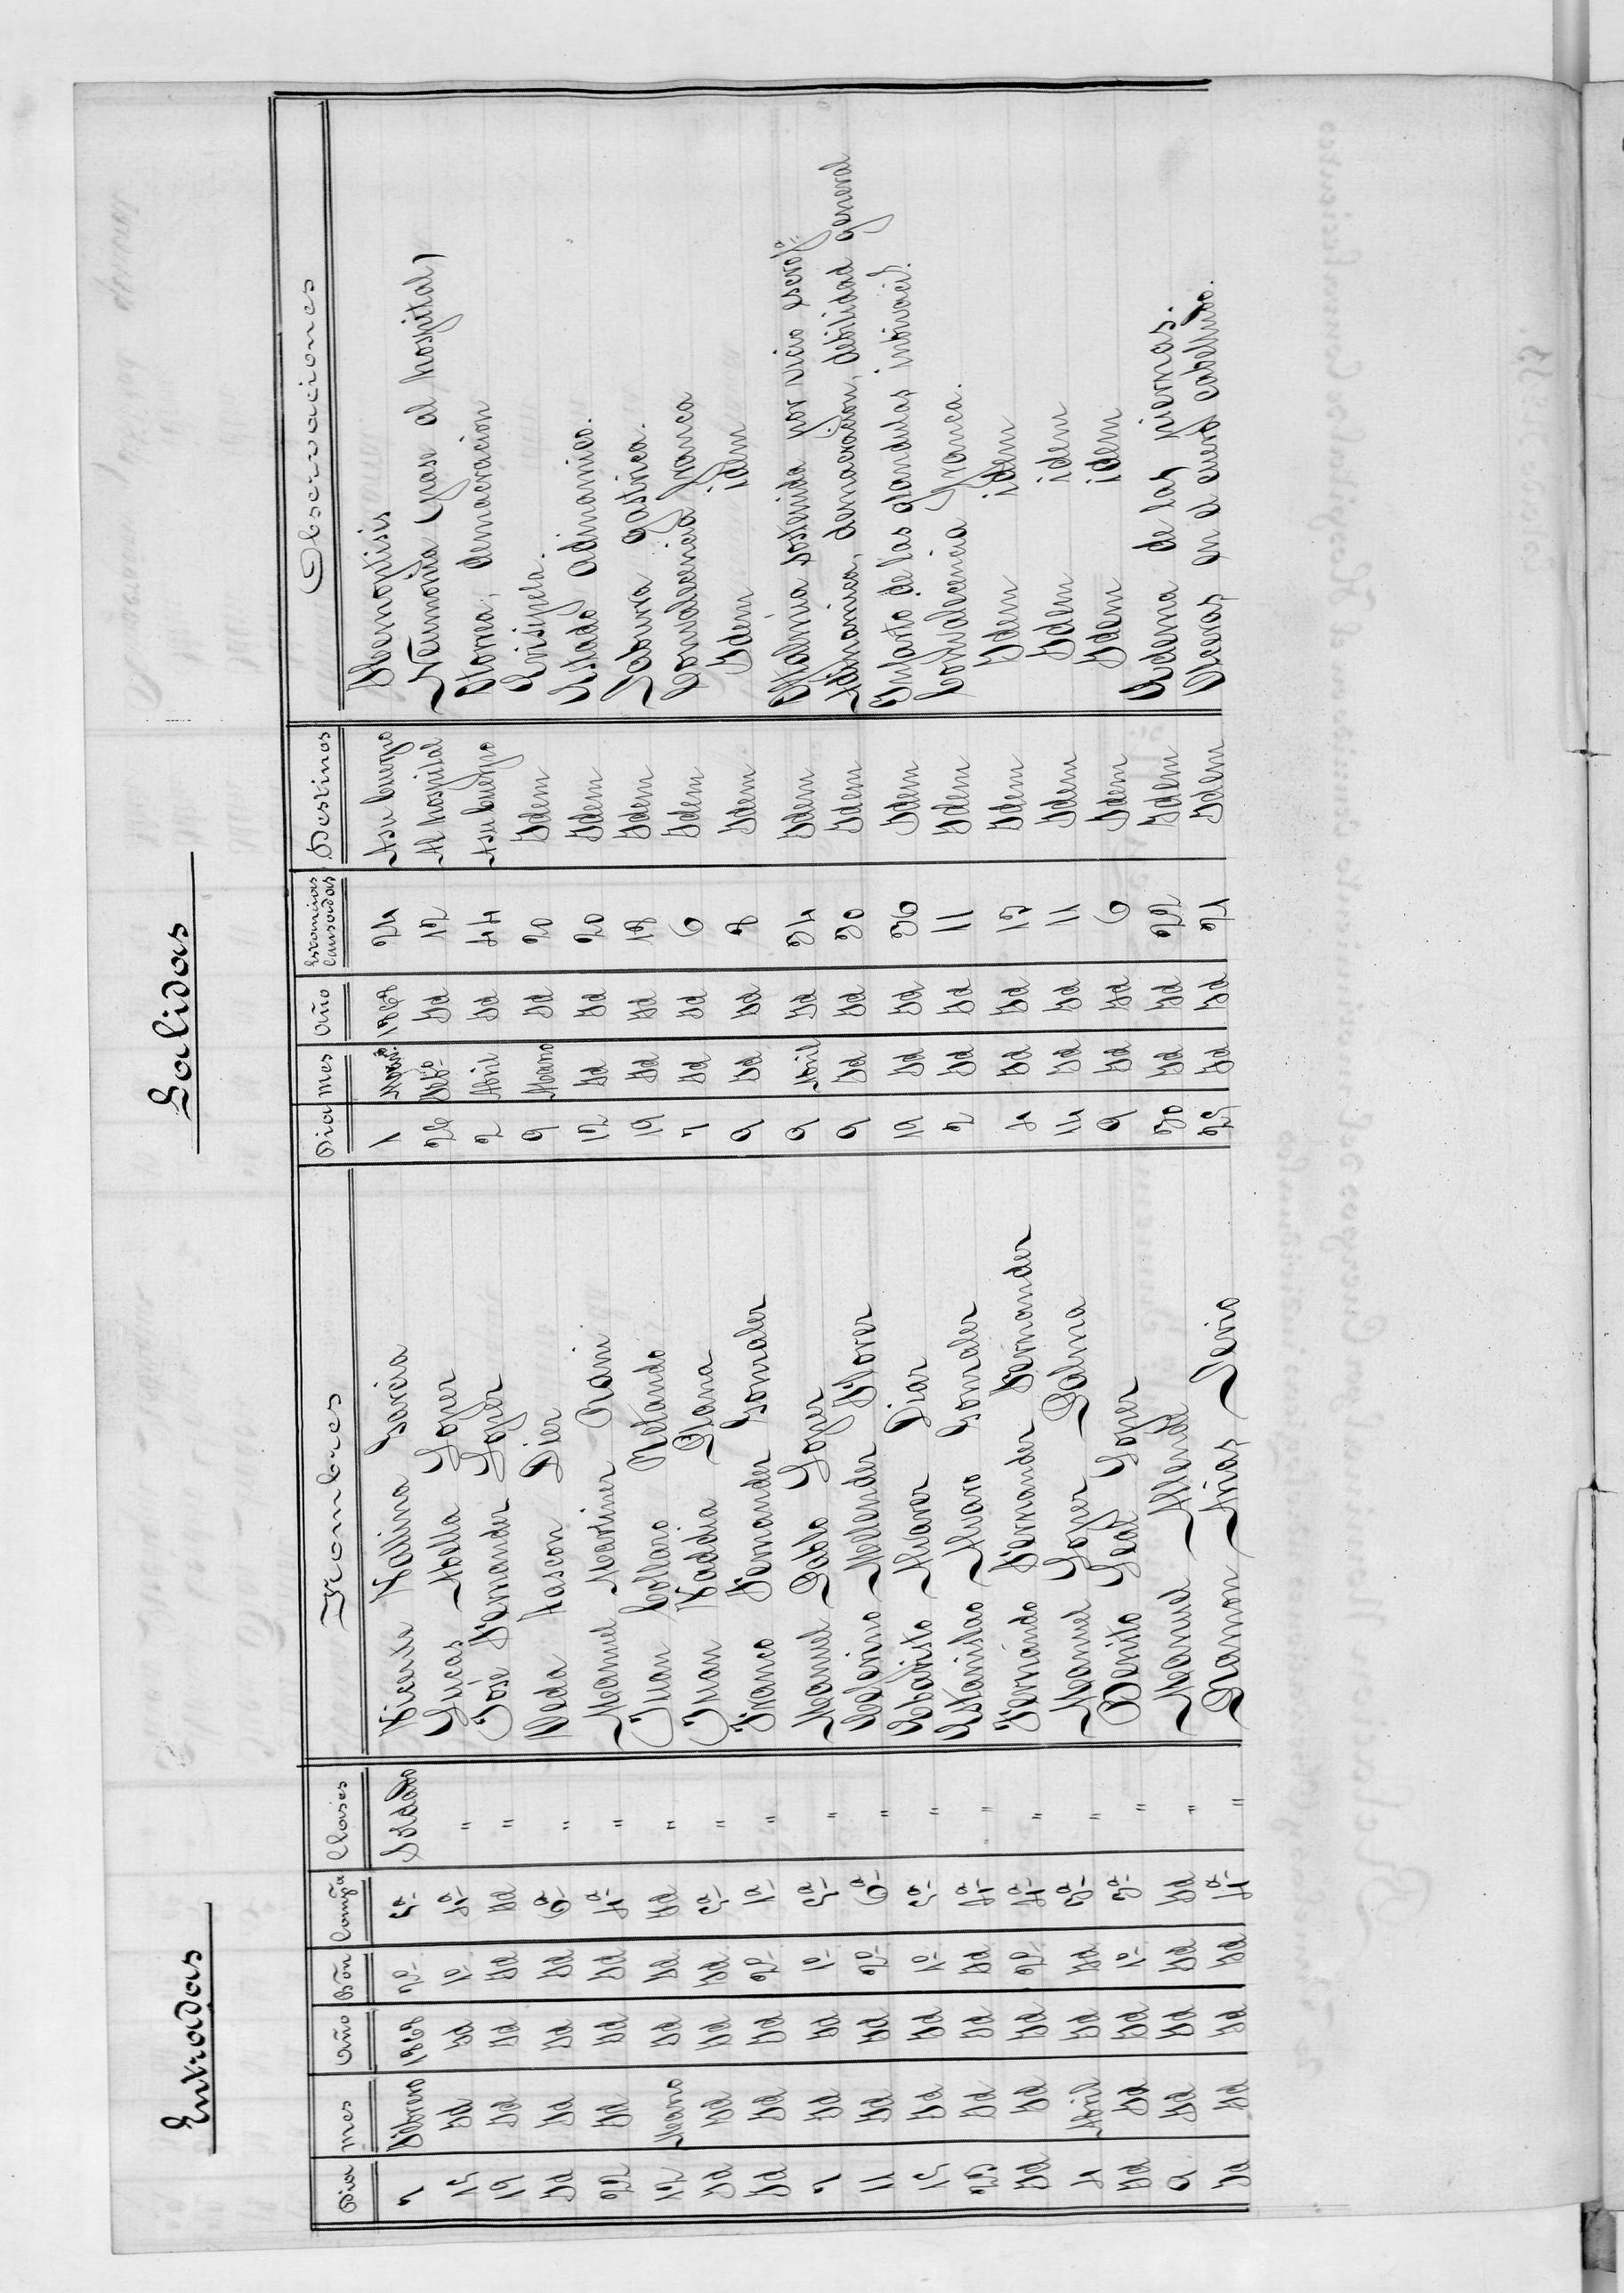 Entradas Salidas
Dia mes Año Bón Compª Clases Nombres Dia mes Año Estancias Causadas Destinos Observaciones
7 Febrero 1868 2º 5ª Soldado Vicente Vallina Garcia 1 Marzo 1868 24 A su cuerpo Hemoptisis
15 Id Id 1º 4ª " Lucas Abella Lopez 26 Febº Id 12 Al hospital Neumonia (pase al hospital)
19 Id Id Id Id " José Fernandez Lopez 2 Abril Id 44 A su cuerpo Otorrea, demacracion
Id Id Id Id 6ª " Veda Diez 9 Marzo Id 20 Idem Erisipela.
22 Id Id Id 4ª " Manuel Martinez 12 Id Id 20 Idem Estado adinamico.
12 Marzo Id Id Id " Juan Collazo Id Id 18 Idem Saburra gastrica.
Id Id Id Id 5ª " Juan 7 Id Id 6 Idem Convalecencia franca
Id Id Id 2º 1ª " Franco Fernandez Gonzalez 9 Id Id 8 Idem Idem idem
7 Id Id 1º 5ª " Manuel Pablo Lopez 9 Abril Id 34 Idem Oftalmia sostenida por vicio escrofº
11 Id Id 2º 6ª " Zeferino Melendez Florez 9 Id Id 30 Idem Adinamica, demacracion, debilidad general
15 Id Id 1º 5ª " Evaristo Alvarez Diaz 19 Id Id 36 Idem Infarto de las glandulas
23 Id Id Id 4ª " Estanislao Alvaro Gonzalez 2 Id Id 11 Idem Convalecencia franca.
Id Id Id 2º 4ª " Fernando Fernandez Fernandez 4 Id Id 13 Idem Idem idem
4 Abril Id Id 3ª " Manuel Lopez Palma 14 Id Id 11 Idem Idem idem
Id Id Id 1º 3ª " Benito Leal Lopez 9 Id Id 6 Idem Idem idem
9 Id Id Id Id " Manuel Allende 30 Id Id 22 Idem Edema de las piernas.
Id Id Id Id 4ª " Ramon Arias 29 Id Id 21 Idem Ulceras en el cuero cabelludo.